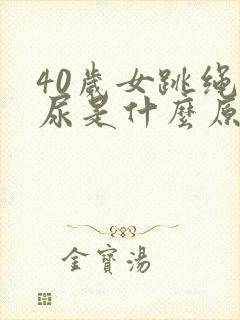 40歲女跳绳
尿是什麼原
金寳湯